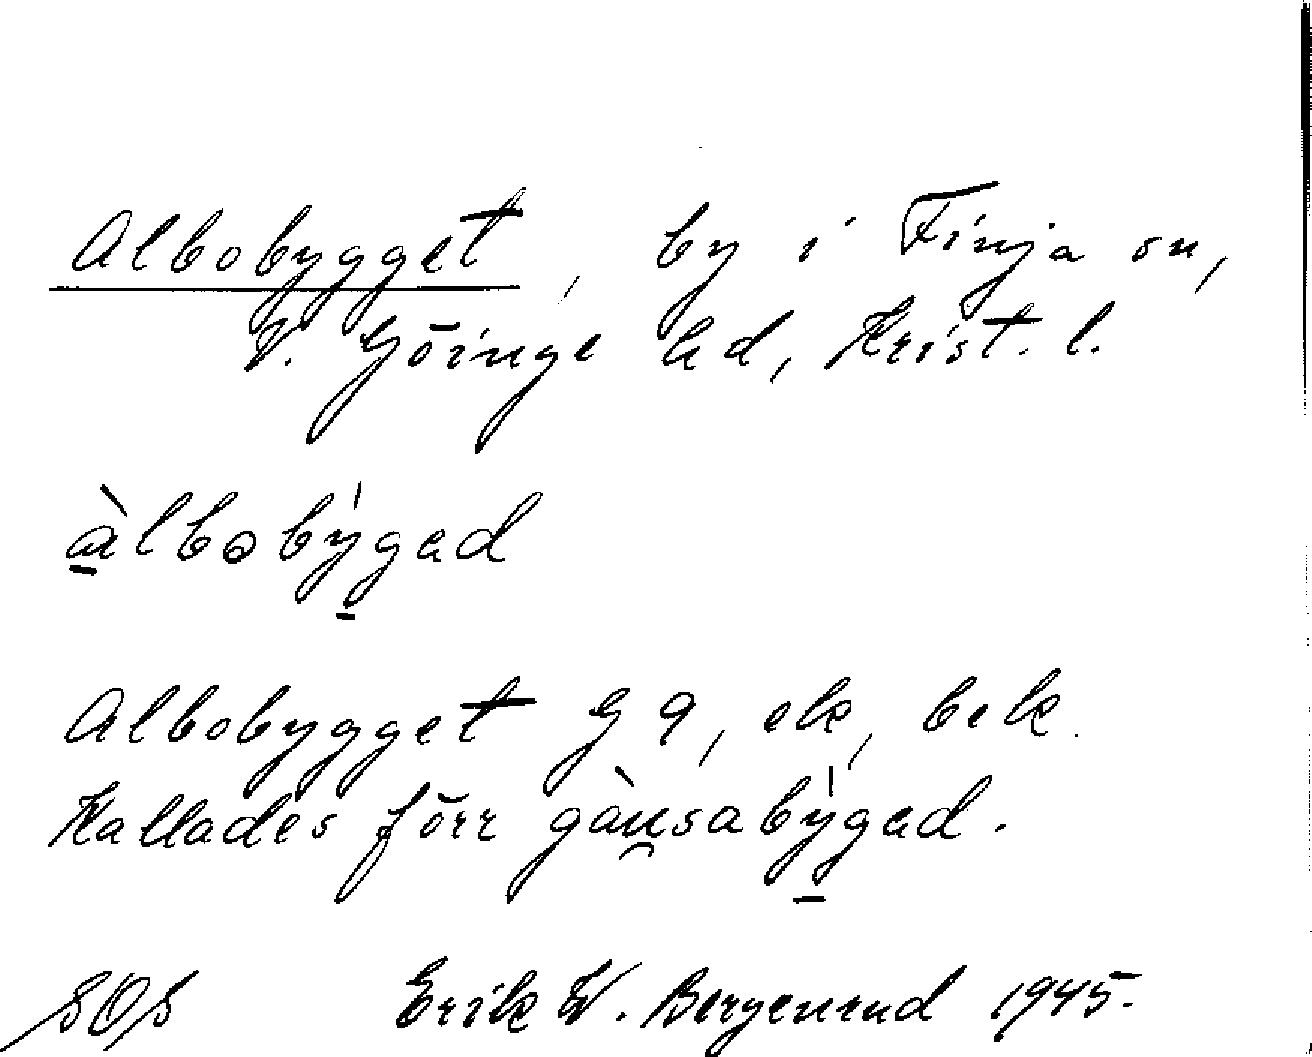 Albobygget, by i Finja sn,
V. Göinge hd, Krist. l.
àlbobýgad
Albobygget G 9, ek, bek.
Kallades förr gàusabýgad.
SOS Erik W. Bergenrud 1945.